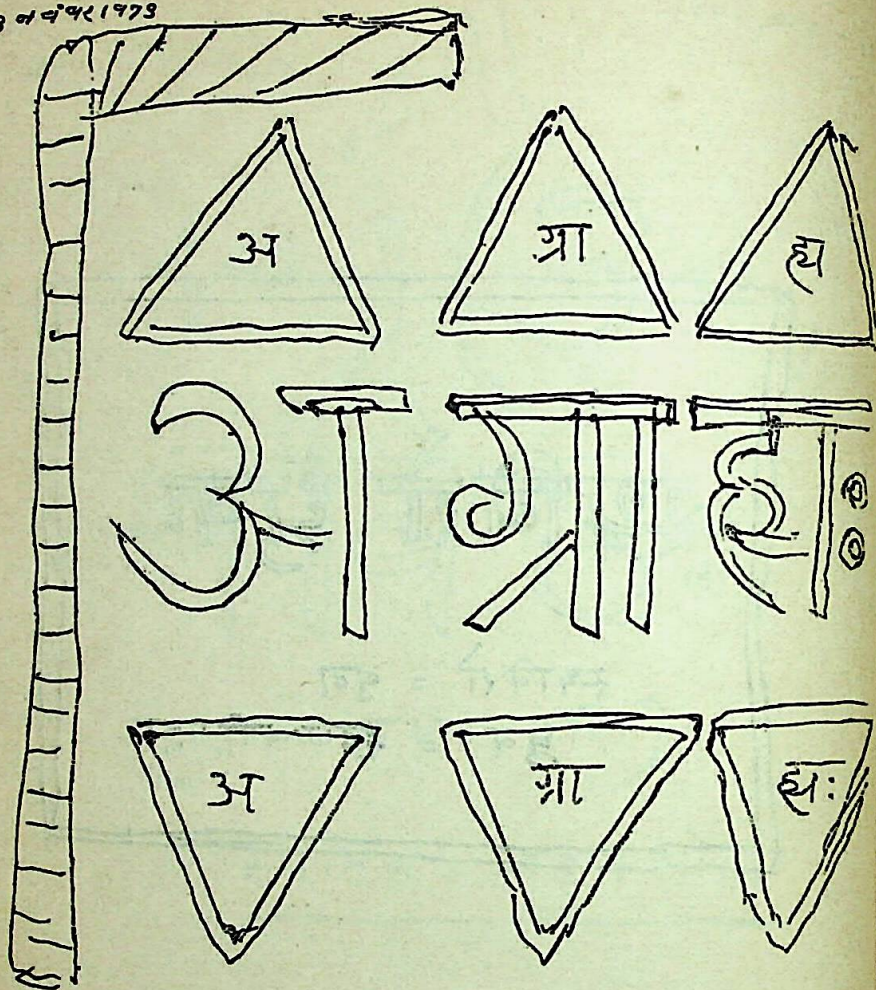 नवंबर 1973
अ ग्रा ह्य
अ ग्रा ह्य:
अ ग्रा ह्य: